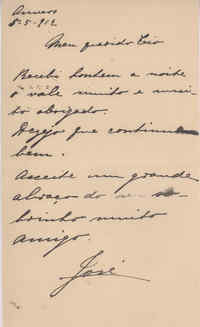 Anvers
8-5-912
Meu querido Tio
Recebi hontem a noite
o vale muito e mui
to obrigado.
Desejo que continue
bem.
Acceite um grande
abraço do so-
brinho muito
amigo.
José